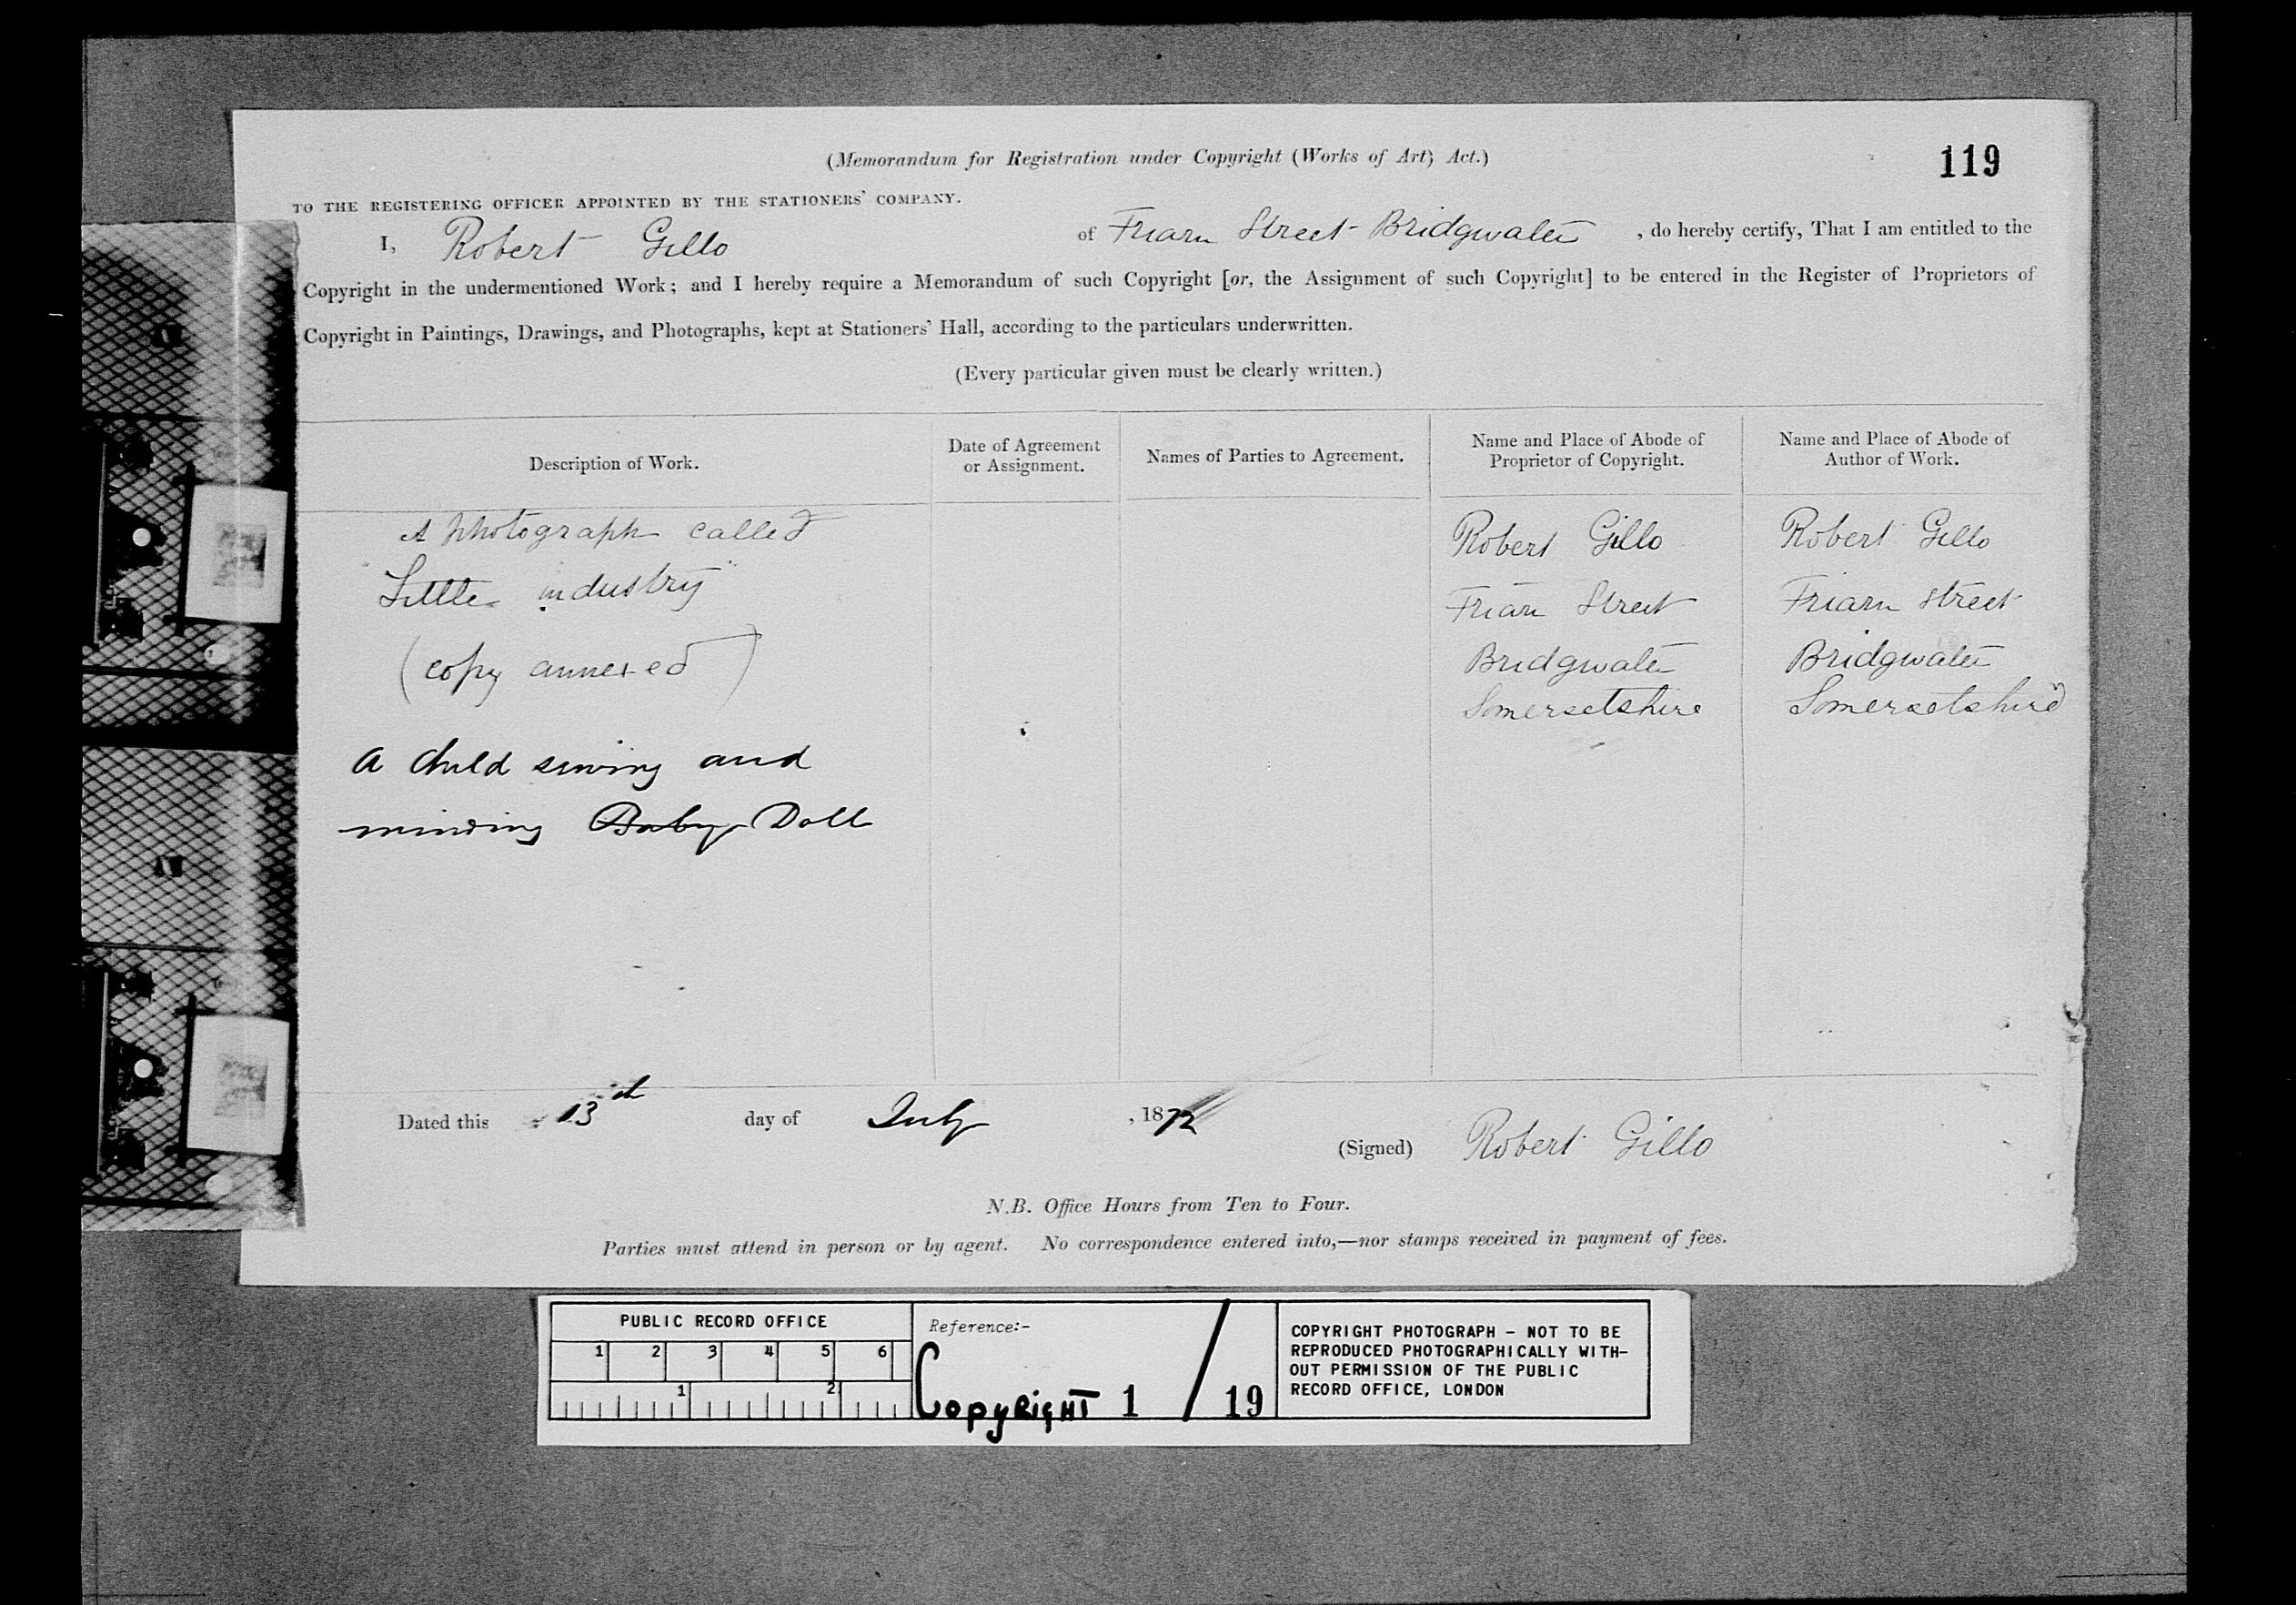 (Memorandum for Registration under Copyright (Works of Art) Act.)
119
TO THE REGISTERING OFFICER APPOINTED BY THE STATIONERS' COMPANY.
I, Robert Gillo of Friarn Street Bridgwater , do hereby certify, That I am entitled to the
Copyright in the undermentioned Work; and I hereby require a Memorandum of such Copyright [or, the Assignment of such Copyright] to be entered in the Register of Proprietors of
Copyright in Paintings, Drawings, and Photographs, kept at Stationers' Hall, according to the particulars underwritten.
(Every particular given must be clearly written.)
Description of Work.
A photograph called
"Little industry"
(copy annexed)
A Child sewing and
minding Baby Doll
Date of Agreement
or Assignment.
Names of Parties to Agreement.
Name and Place of Abode of
Proprietor of Copyright.
Robert Gillo
Friarn Street
Bridgwater
Somersetshire
Name and Place of Abode of
Author of Work.
Robert Gillo
Friarn Street
Bridgwater
Somersetshire
Dated this 13th day of July , 1872
(Signed) Robert Gillo
N.B. Office Hours from Ten to Four.
Parties must attend in person or by agent. No correspondence entered into,—nor stamps received in payment of fees.
PUBLIC RECORD OFFICE
1 2 3 4 5 6
1 2
Reference:-
Copyright 1 / 19
COPYRIGHT PHOTOGRAPH - NOT TO BE
REPRODUCED PHOTOGRAPHICALLY WITH-
OUT PERMISSION OF THE PUBLIC
RECORD OFFICE, LONDON